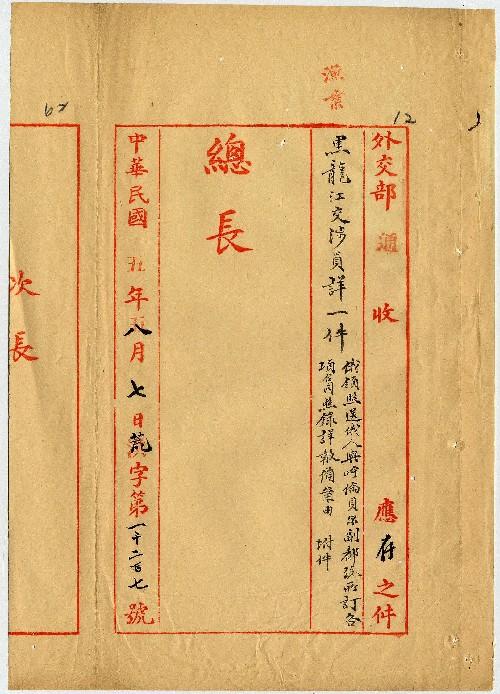 漁業
12
62
外交部 通 收 應存之件
黑龍江交涉員詳一件
俄領照送俄人與呼倫貝爾副都統所訂各
項合同照錄詳報備案由 附件
總長
中華民國五年八月七日荒字第一千二百七號
次長